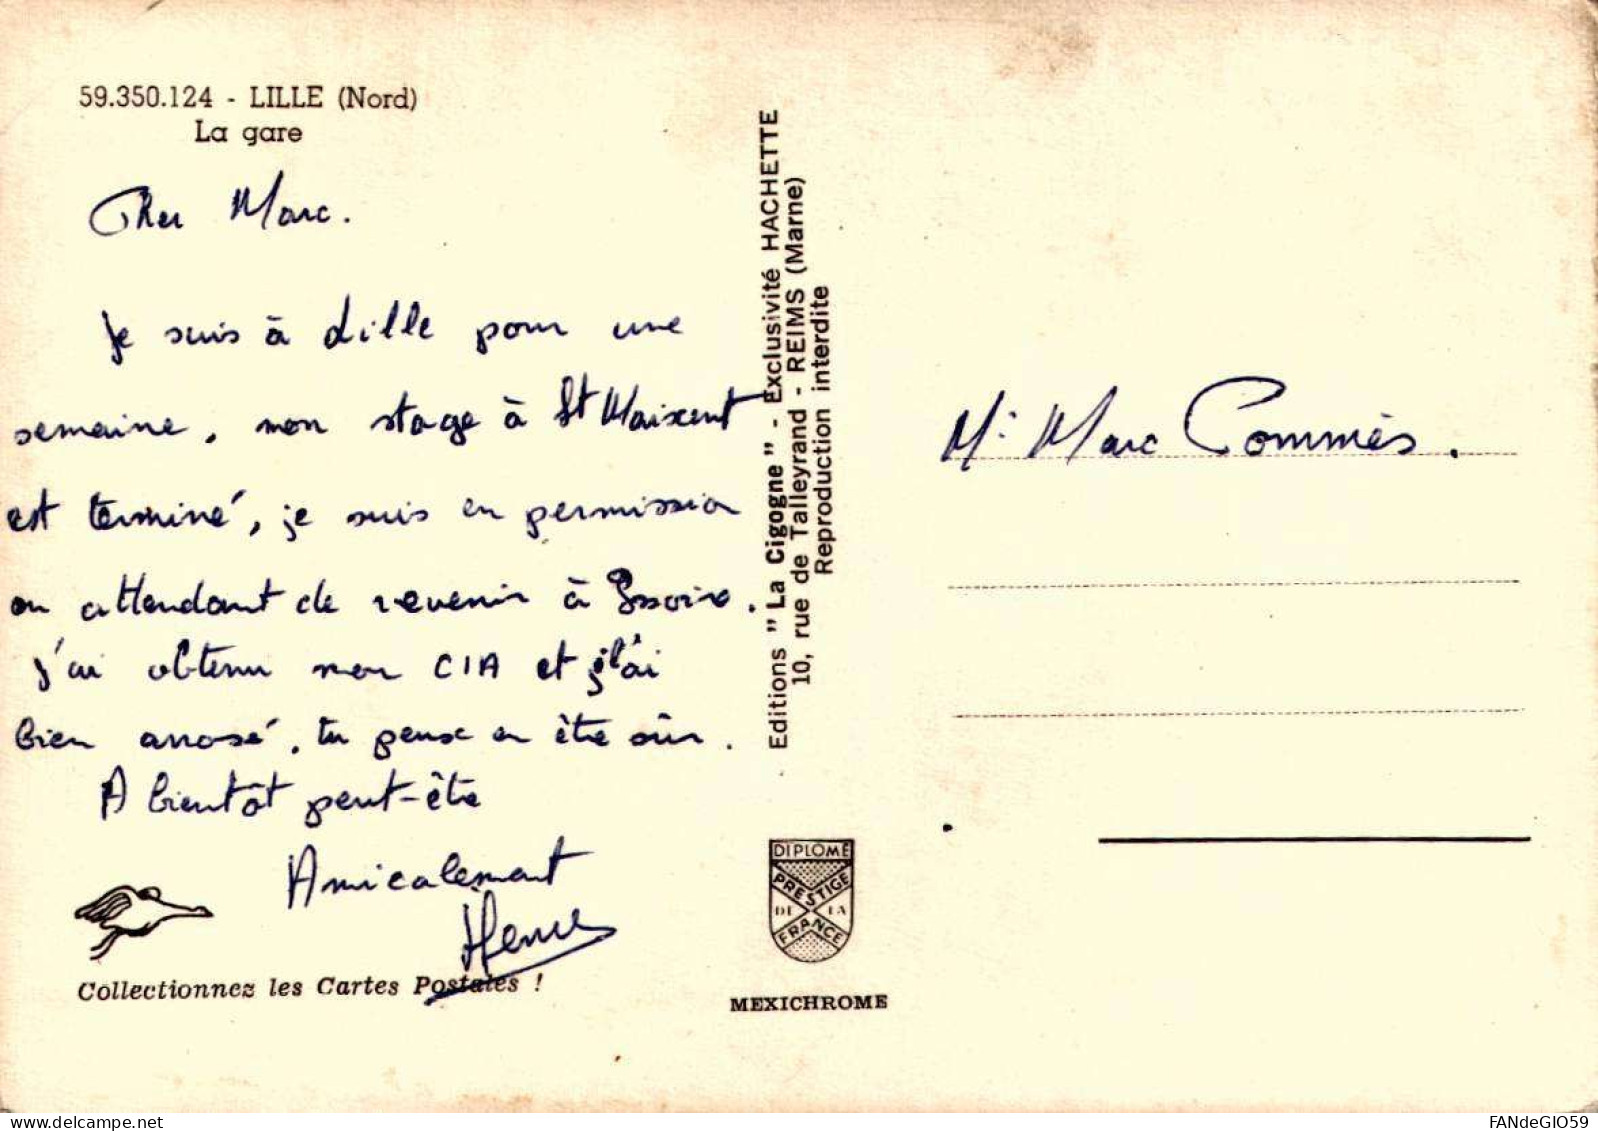 59.350.124 - LILLE (Nord)
La gare
Cher Marc.
Je suis à Lille pour une
semaine, mon stage à St Maixent
est terminé, je suis en permission
en attendant de revenir à Issoire.
J'ai obtenu mon CIA et j'l'ai
bien arrosé, tu peux en être sûr.
A bientôt peut-être
Amicalement
Collectionnez les Cartes Postales !
Editions "La Cigogne" - Exclusivité HACHETTE
10, rue de Talleyrand - REIMS (Marne)
Reproduction interdite
DIPLOME
PRESTIGE
DE LA
FRANCE
MEXICHROME
Mr Marc Commès.
delcampe.net
FANdeGIO59